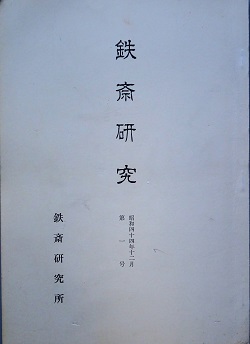 鉄斎研究
昭和四十四年十二月
第一号
鉄斎研究所